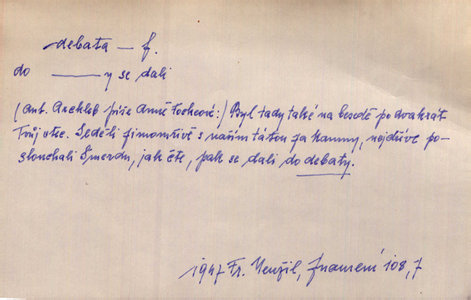 debata – f.
do ——— y se dali
(Ant. Archleb píše Anně Tocheové:) Byl tady také na besedě po dvakrát
Tvůj otec. Seděli zimomřivě s naším tátou za kamny, nejdříve po-
slouchali Šmerdu, jak čte, pak se dali do debaty.
1947 Fr. Neužil, Znamení 108,7